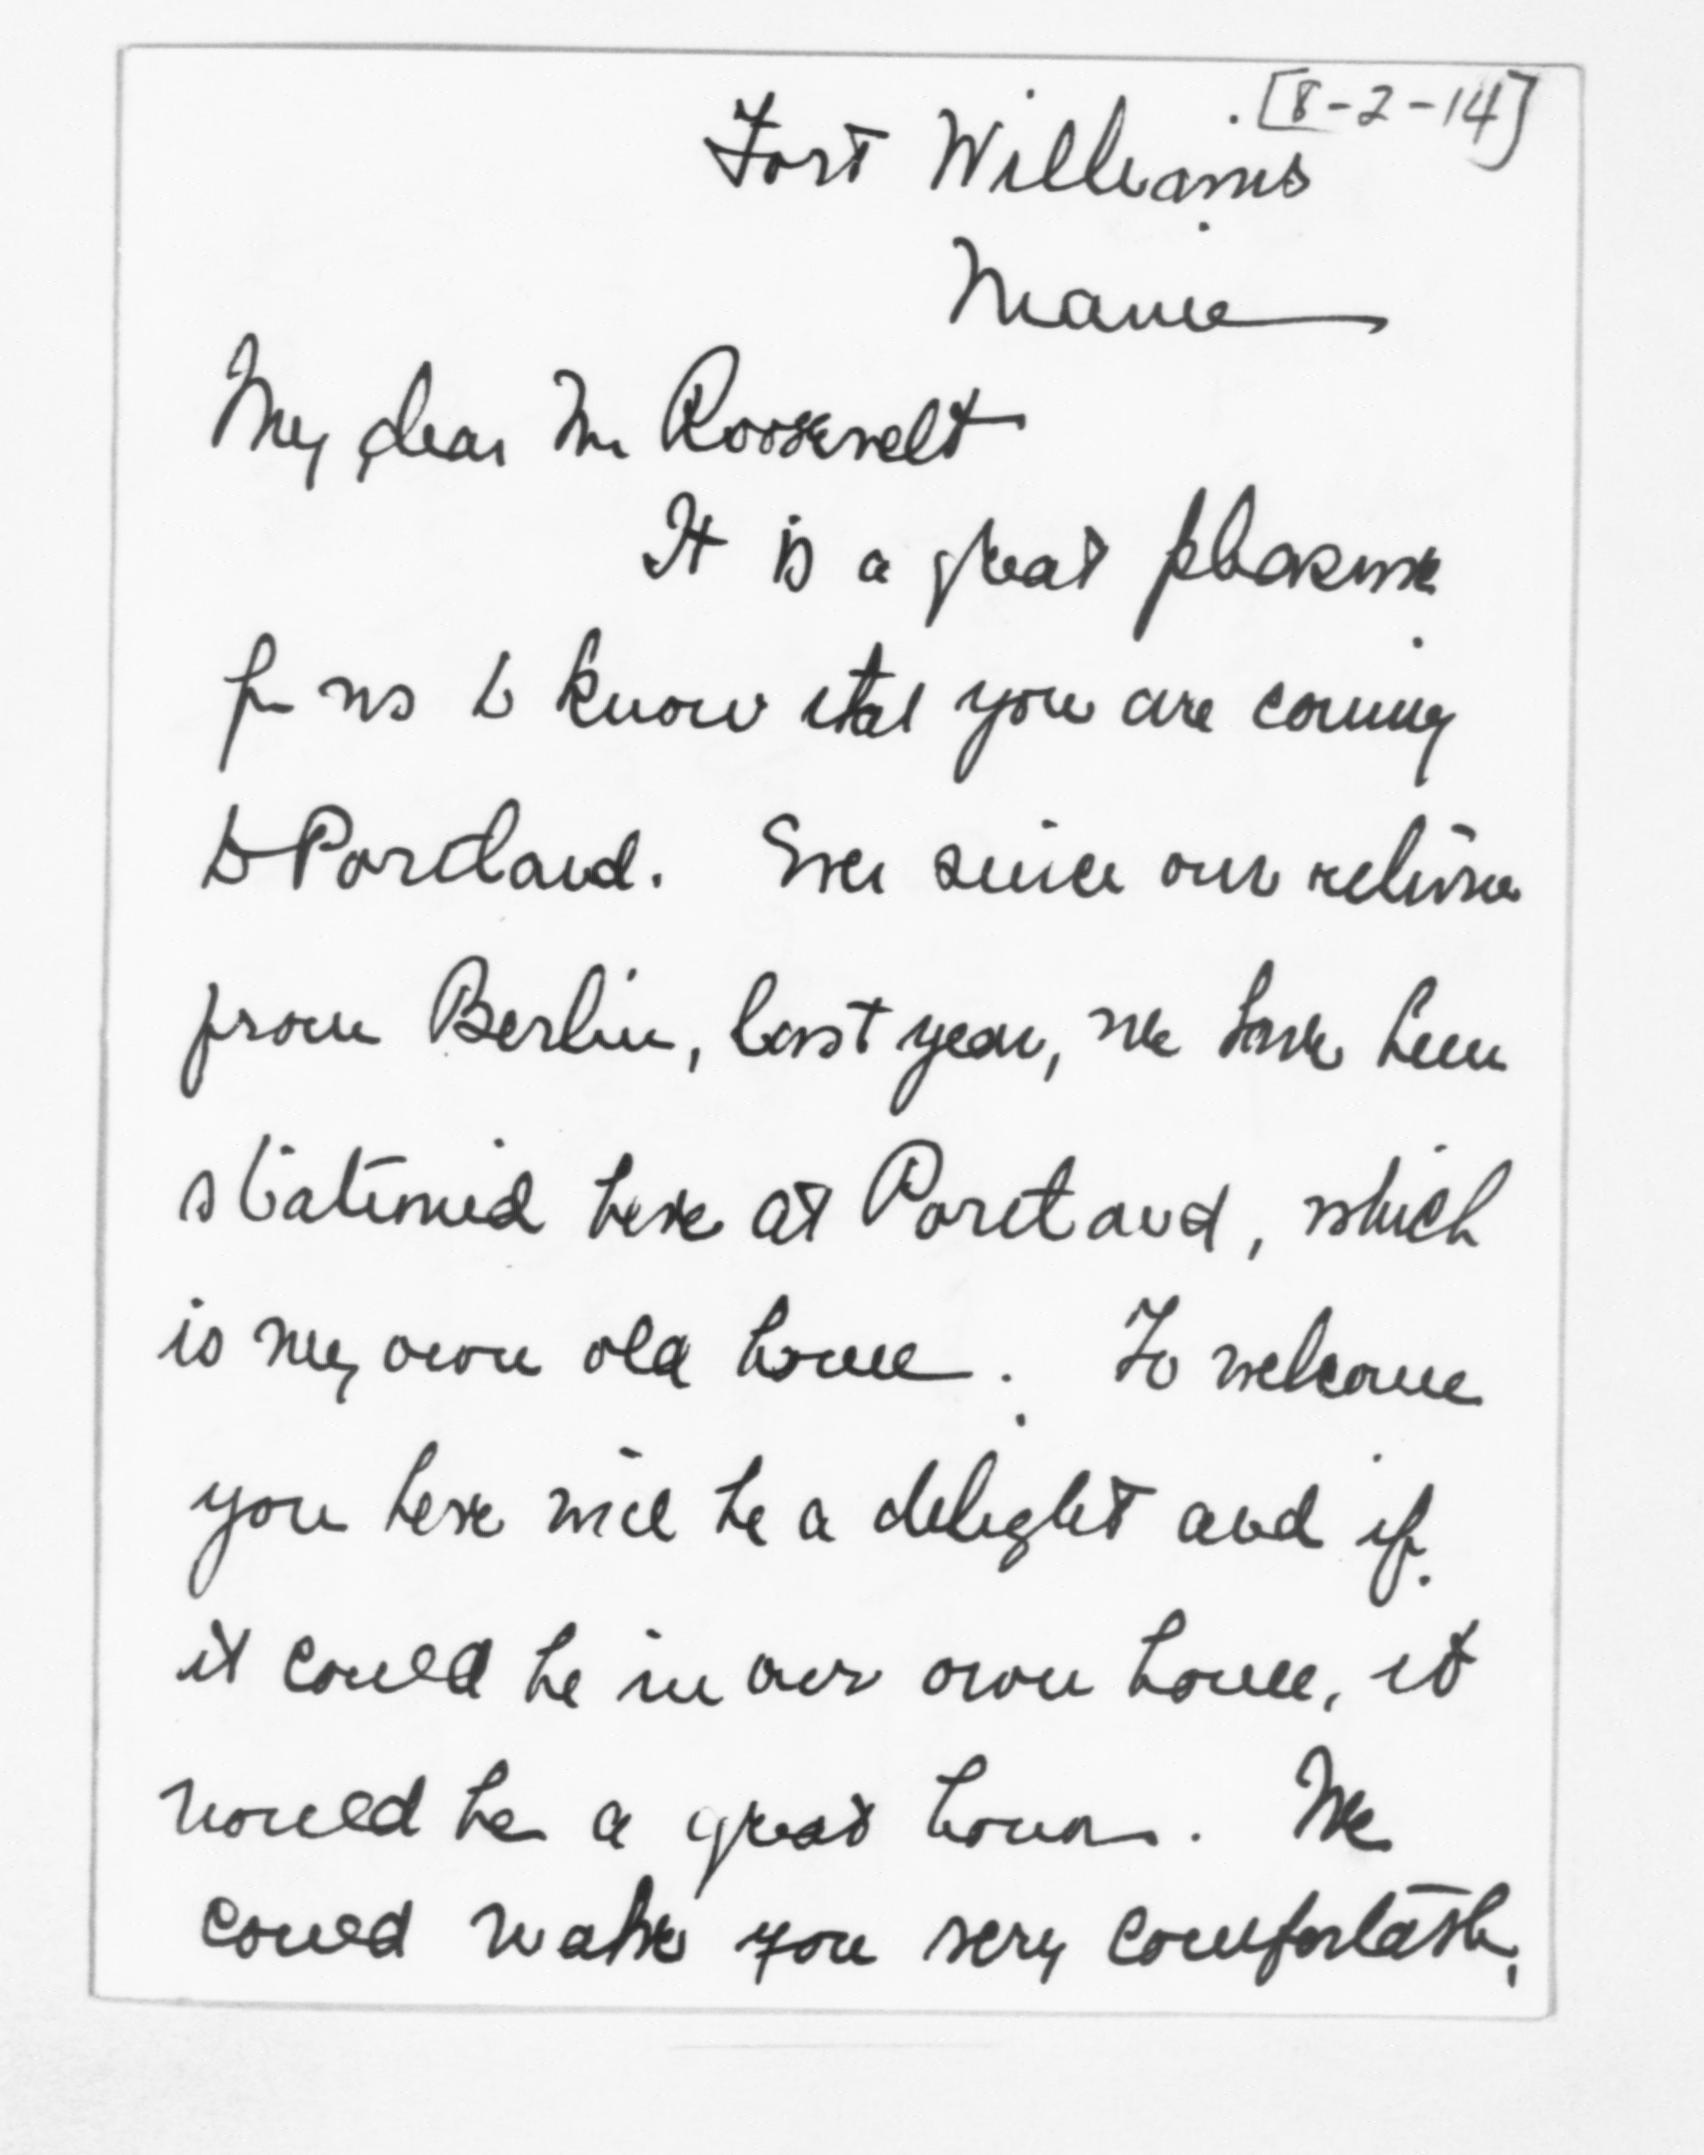 [8-2-14]
Fort Williams
Maine
My dear Mr Roosevelt
It is a great pleasure
for us to know that you are coming
to Portland. Ever since our return
from Berlin, last year, we have been
stationed here at Portland, which
is my own old home. To welcome
you here will be a delight and if
it could be in our own house, it
would be a great honor. We
could make you very comfortable,